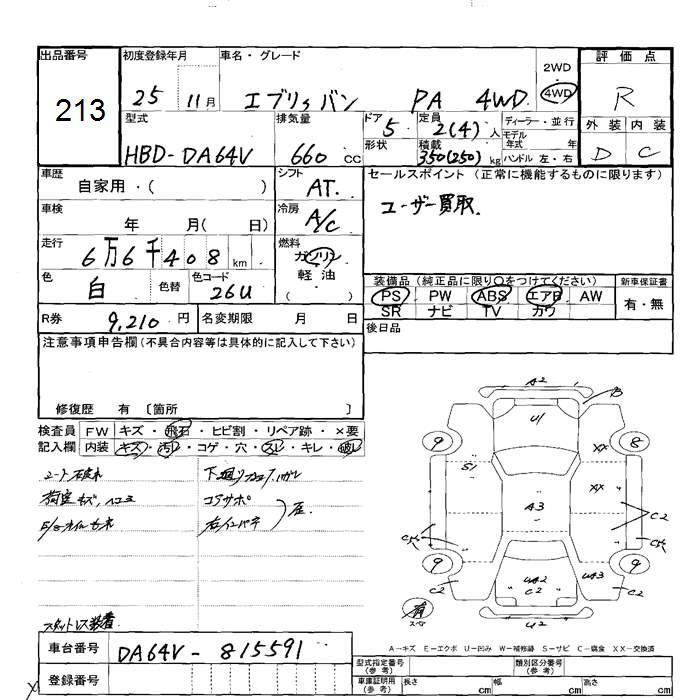 出品番号
213
初度登録年月
25 11月
車名・グレード
エブリィバン PA 4WD
2WD
4WD
評価点
R
外装 内装
D C
型式
HBD-DA64V
排気量
660 CC
ドア
5
形状
定員
2(4)人
積載
350(250)kg
ディーラー・並行
モデル
年式 年
ハンドル 左・右
車歴
自家用・( )
シフト
AT.
セールスポイント(正常に機能するものに限ります)
ユーザー買取.
車検
年 月( 日)
冷房
A/C
走行
6万6千408 km
燃料
ガソリン
軽油
( )
色
白
色替
色コード
26U
装備品(純正品に限り○をつけてください)
PS PW ABS エアB AW
SR ナビ TV カワ
新車保証書
有・無
R券
9,210 円
名変期限 月 日
後日品
注意事項申告欄(不具合内容等は具体的に記入して下さい)
修復歴 有 〔箇所 〕
検査員
記入欄
FW キズ・飛石・ヒビ割・リペア跡・×要
内装 キズ・汚レ・コゲ・穴・スレ・キレ・破レ
コアサポ
スタットレス装着
車台番号
DA64V-815591
登録番号
A2
B
U1
9
8
S1
XX
XX
A3
C2
9
9
C2
UA2
C2
UA3
C2
有
スペア
U2
A-キズ E-エクボ U-凹み W-補修跡 S-サビ C-腐食 XX-交換済
型式指定番号
(参考)
類別区分番号
(参考)
車庫証明用
(参考)
長さ cm
幅 cm
高さ cm